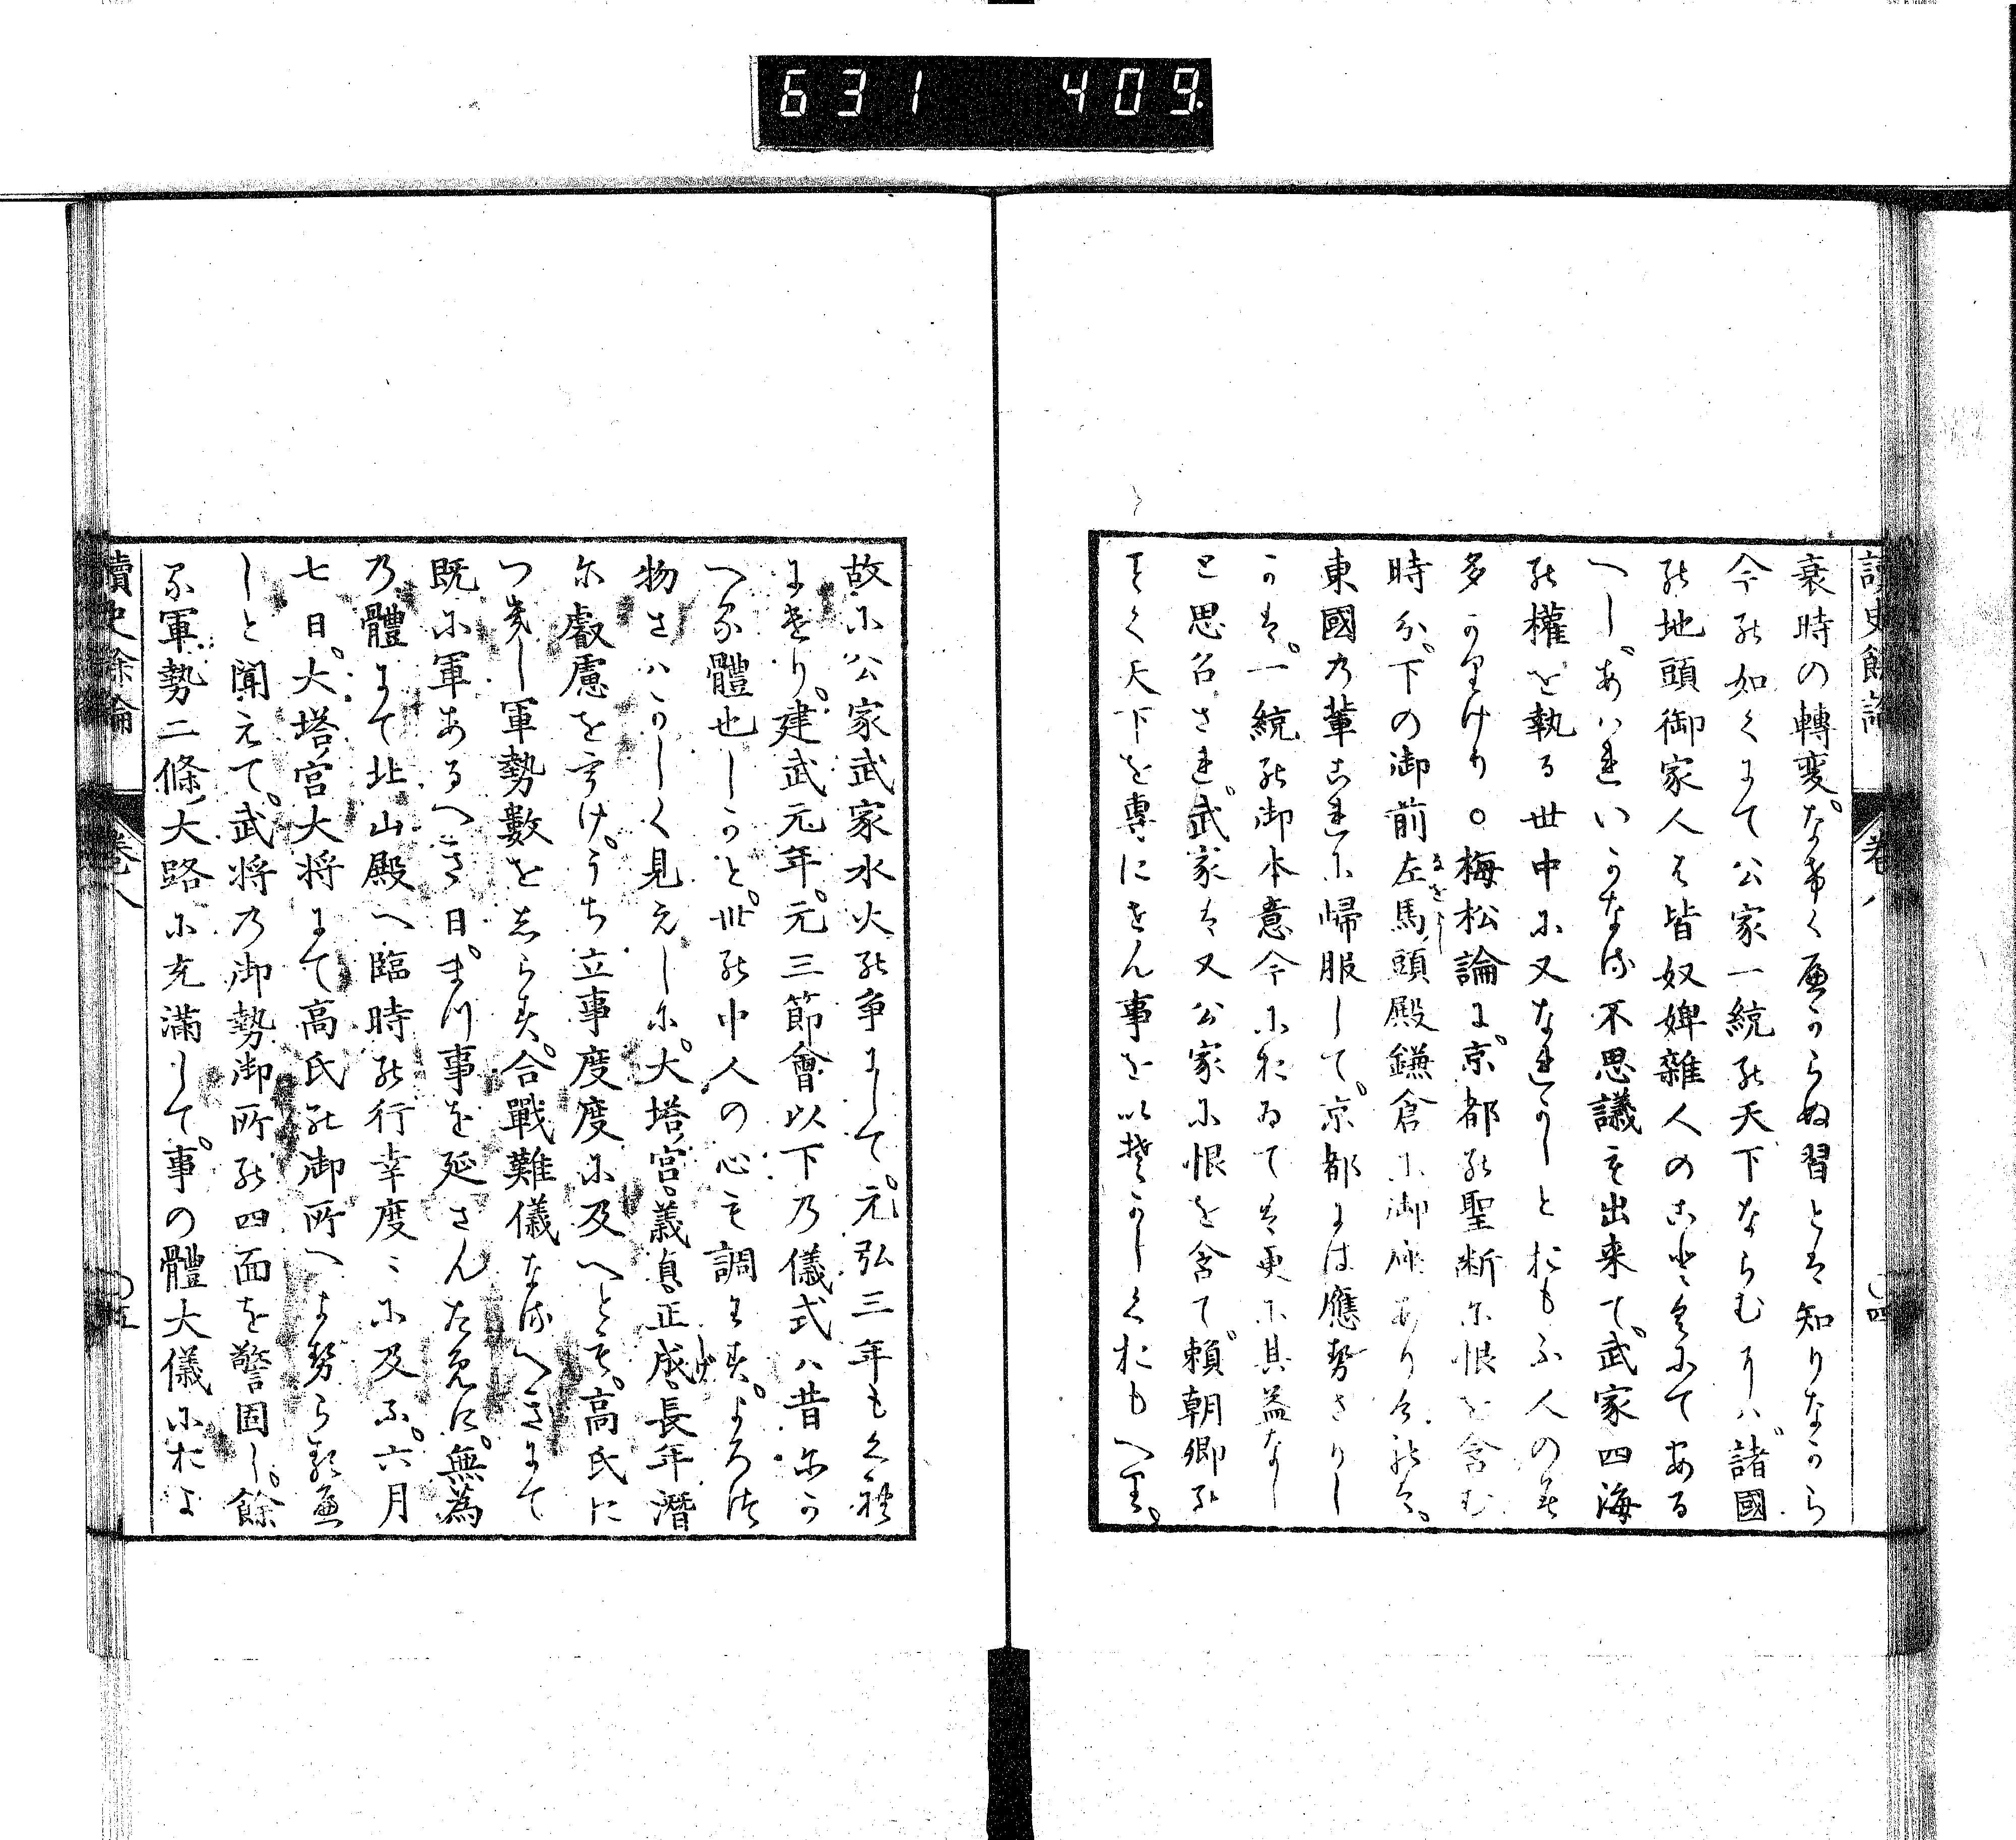 631 409.
讀史餘論 巻八 〇四
衰時の轉変。なげくべからぬ習とは知りながら
今の如くにて公家一統の天下ならむには。諸國
の地頭御家人は皆奴婢雜人のことくにてある
へし。あはれいかなる不思議も出来て。武家四海
の權を執る世中に又なれかしとおもふ人のみ
多かりけり〇梅松論に。京都の聖断に恨を含む
時分。下の御前左馬頭殿鎌倉に御座ありけれは。
東國の輩これに帰服して。京都には應せさりし
かは。一統の御本意今におゐては更に其益なし
と思召され。武家は又公家に恨を含て。頼朝卿の
ことく天下を專にせん事を以そかしくおもへり。
故に公家武家水火の争にして。元弘三年もくれ
にけり。建武元年。元三節會以下の儀式ハ昔にか
へる體也しかと。世の中人の心も調はす。よろつ
物さハかしく見えしに。大塔宮義貞正成長年潛
に叡慮をうけ。うち立事度度に及へとも。高氏に
つきし軍勢数をしらす。合戰難儀なるへきにて
既に軍あるへき日。まつ事を延さんために。無為
の體にて北山殿へ臨時の行幸度〻に及ふ。六月
七日。大塔宮大将にて高氏の御所へよせらるへ
しと聞えて。武将の御勢御所の四面を警固し。餘
る軍勢二條大路に充滿して。事の體大儀におよ
讀史餘論 巻八 〇五